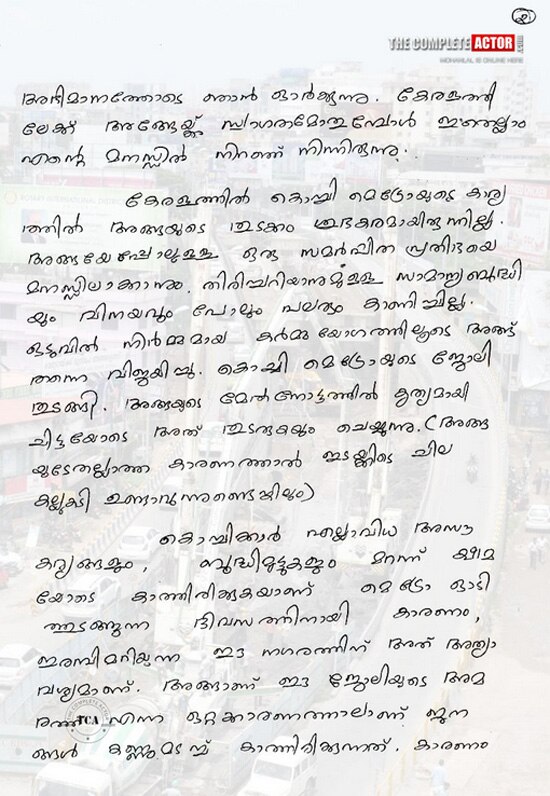 2
THE COMPLETE ACTOR
MOHANLAL IS ONLINE HERE
അഭിമാനത്തോടെ ഞാൻ ഓർക്കുന്നു. കേരളത്തി
ലേക്ക് അങ്ങേയ്ക്ക് സ്വാഗതമോതുമ്പോൾ ഇതെല്ലാം
എന്റെ മനസ്സിൽ നിറഞ്ഞ് നിന്നിരുന്നു.
കേരളത്തിൽ കൊച്ചി മെട്രോയുടെ കാര്യ
ത്തിൽ അങ്ങയുടെ തുടക്കം ശുഭകരമായിരുന്നില്ല.
അങ്ങയേപ്പോലുള്ള ഒരു സമർപ്പിത പ്രതിഭയെ
മനസ്സിലാക്കാനും, തിരിച്ചറിയാനുമുള്ള സാമാന്യബുദ്ധി
യും വിനയവും പോലും പലരും കാണിച്ചില്ല.
ഒടുവിൽ നിർമ്മമായ കർമ്മയോഗത്തിലൂടെ അങ്ങ്
തന്നെ വിജയിച്ചു. കൊച്ചി മെട്രോയുടെ ജോലി
തുടങ്ങി. അങ്ങയുടെ മേൽനോട്ടത്തിൽ കൃത്യമായി
ചിട്ടയോടെ അത് തുടരുകയും ചെയ്യുന്നു. (അങ്ങ
യുടേതല്ലാത്ത കാരണത്താൽ ഇടയ്ക്കിടെ ചില
കല്ലുകടി ഉണ്ടാവുന്നുണ്ടെങ്കിലും)
കൊച്ചിക്കാർ എല്ലാവിധ അസൗ
കര്യങ്ങളും, ബുദ്ധിമുട്ടുകളും മറന്ന് ക്ഷമ
യോടെ കാത്തിരിക്കുകയാണ് മെട്രോ ഓടി
ത്തുടങ്ങുന്ന ദിവസത്തിനായി കാരണം,
ഇരമ്പിമറിയുന്ന ഈ നഗരത്തിന് അത് അത്യാ
വശ്യമാണ്. അങ്ങാണ് ഈ ജോലിയുടെ അമ
രത്ത് എന്ന ഒറ്റക്കാരണത്താലാണ് ജന
ങ്ങൾ കണ്ണുമടച്ച് കാത്തിരിക്കുന്നത്. കാരണം
TCA